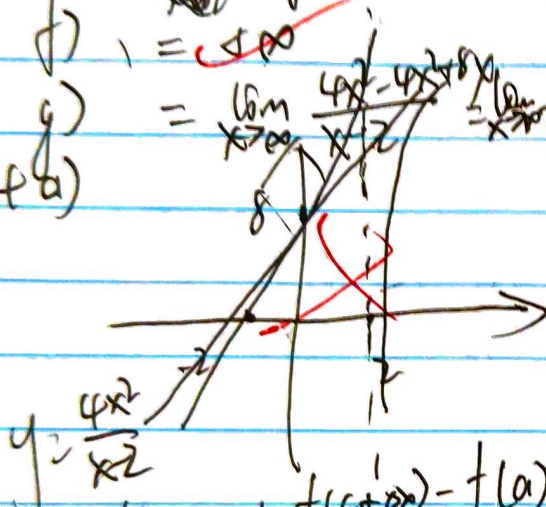 f) = +∞
g) = lim x→∞ (4x² - 4x² + 8x)/(x - 2) = lim x→∞
+a)
8
-2
2
y = 4x²/(x-2)
f(a)